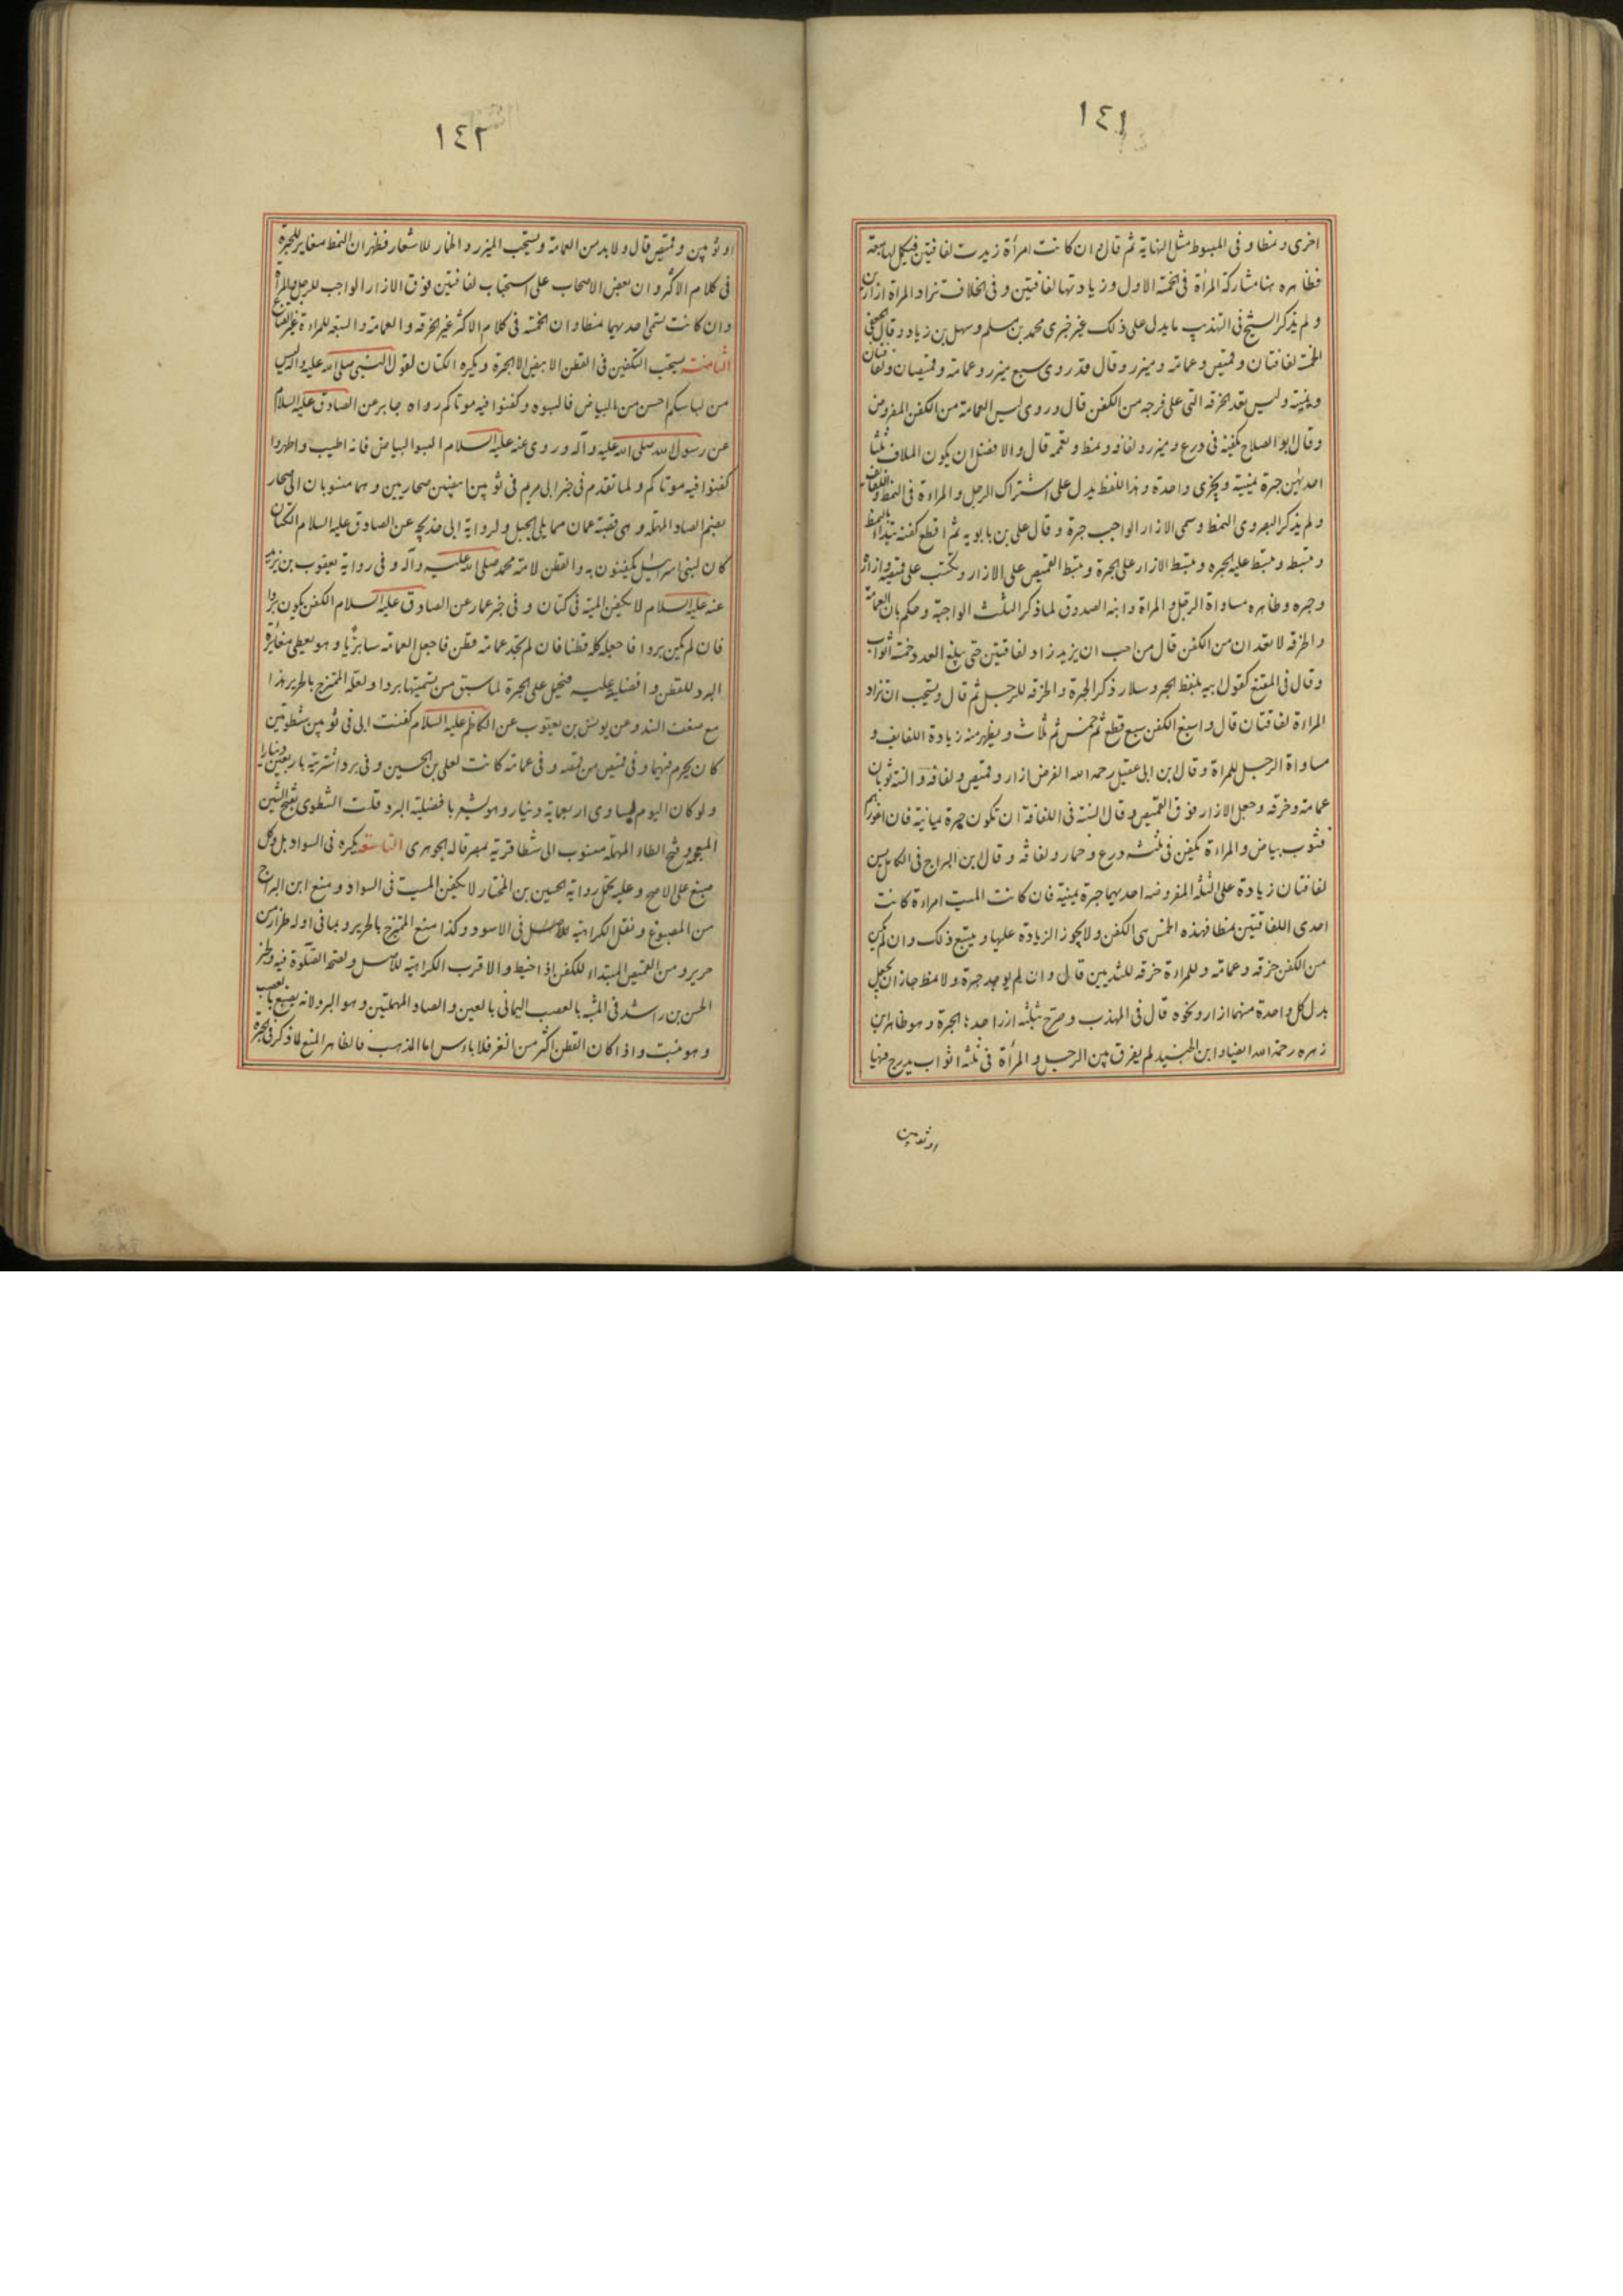 ١٤١
اخرى ونمطا وفى المبسوط مثل النهاية ثم قال وان كانت امرأة زيدت لفافتين فيكمل لها سبعة
فظاهره هنا مشاركة المرأة فى الخمسة الاول وزيادتها لفافتين وفى الخلاف تزاد المرأة ازارين
ولم يذكر الشيخ فى التهذيب ما يدل على ذلك غير خبرى محمد بن مسلم وسهل بن زياد وقال الجعفى
الخمسة لفافتان وقميص وعمامة وميزر وقال قد روى سبع ميزر وعمامة وقميصان ولفافتان
ويمنية وليس تعد الخرقة التى على فرجه من الكفن قال وروى ليس العمامة من الكفن المفروض
وقال ابو الصلاح يكفنه فى درع وميزر ولفافة ونمط ويعممه قال والافضل ان يكون الملاف ثلثا
احديهن حبرة يمنية ويجزى واحدة وهذا اللفظ يدل على اشتراك الرجل والمراءة فى النمط واللفائف
ولم يذكر البصروى النمط وسمى الازار الواجب حبرة وقال على بن بابويه ثم اقطع كفنه تبدأ بالنمط
وتبسطه وتبسط عليه الحبره وتبسط الازار على الحبرة وتبسط القميص على الازار وتكتب على قميصه وازاره
وحبره وظاهره مساواة الرجل والمراة وابنه الصدوق لما ذكر الثلث الواجبة وحكم بان العمامة
والخرقه لا تعدان من الكفن قال من احب ان يزيد زاد لفافتين حتى يبلغ العدد خمسة اثواب
وقال فى المقنع كقول ابيه بلفظ الخبر وسلار ذكر الحبرة والخرقه للرجل ثم قال ويستحب ان تزاد
المراءة لفافتان قال واسبغ الكفن سبع قطع ثم خمس ثم ثلاث ويظهر منه زيادة اللفايف و
مساواة الرجل للمراة وقال ابن ابى عقيل رحمه الله الفرض ازار وقميص ولفافه والسنة ثوبان
عمامة وخرقه وجعل الازار فوق القميص وقال السنة فى اللفافة ان تكون حبرة يمانية فان اعوزهم
فثوب بياض والمراءة تكفن فى ثلثه درع وخمار ولفافه وقال ابن البراج فى الكامل يسن
لفافتان زيادة على الثلثه المفروضه احديهما حبرة يمنية فان كانت الميت امراءة كانت
احدى اللفافتين نمطا فهذه الخمس هى الكفن ولا يجوز الزيادة عليها ويتبع ذلك وان لم يكن
من الكفن خرقه وعمامة وللمراءة خرقه للثديين قال وان لم يوجد حبرة ولا نمط جاز ان يجعل
بدل كل واحدة منهما ازار ونحوه قال فى المهذب وصرح بثلثه ازر احدها الحبرة وهو ظاهر ابن
زهره رحمه الله ايضا وابن الجنيد لم يفرق بين الرجل والمرأة فى ثلثه اثواب يدرج فيها
او ثوبين
١٤٢
او ثوبين وقميص قال ولا بد من العمامة ويستحب الميزر والخمار للاشعار فظهر ان النمط مغاير للحبرة
فى كلام الاكثر وان بعض الاصحاب على استحباب لفافتين فوق الازار الواجب للرجل والمرأة
وان كانت تسمى احديهما نمطا وان الخمسة فى كلام الاكثر غير الخرقه والعمامة والسبعه للمراءة غير القناع
الثامنة يستحب التكفين فى القطن الابيض الا الحبرة ويكره الكتان لقول النبى صلى الله عليه واله ليس
من لباسكم احسن من البياض فالبسوه وكفنوا فيه موتاكم رواه جابر عن الصادق عليه السلام
عن رسول الله صلى الله عليه وآله وروى عنه عليه السلام البسوا البياض فانه اطيب واطهر وا
كفنوا فيه موتاكم ولما تقدم فى خبر ابى مريم فى ثوبين ابيضين صحاريين وهما منسوبان الى صحار
بضم الصاد المهمله وهى قصبة عمان مما يلى الجبل ولرواية ابى خديجه عن الصادق عليه السلام الكتان
كان لبنى اسرائيل يكفنون به والقطن لامة محمد صلى الله عليه وآله وفى رواية يعقوب بن يزيد
عنه عليه السلام لا يكفن الميت فى كتان وفى خبر عمار عن الصادق عليه السلام الكفن يكون بردا
فان لم يكن بردا فاجعله كله قطنا فان لم تجد عمامة قطن فاجعل العمامه سابريا وهو يعطى مغايرة
البرد للقطن وافضليته عليه فيحمل على الحبرة لما سبق من تسميتها بردا ولعله الممتزج بالحرير هذا
مع ضعف السند وعن يونس بن يعقوب عن الكاظم عليه السلام كفنت ابى فى ثوبين شطويين
كان يحرم فيهما وفى قميص من قمصه وفى عمامه كانت لعلى بن الحسين وفى برد اشتريته باربعين دينارا
ولو كان اليوم لساوى اربعماية دينار وهو يشعر بافضلية البرد قلت الشطوى بفتح الشين
المعجمه وفتح الطاء المهمله منسوب الى شطا قرية بمصر قاله الجوهرى التاسعة يكره فى السواد بل وكل
صبغ على الاصح وعليه تحمل رواية الحسين بن المختار لا يكفن الميت فى السواد ومنع ابن البراج
من المصبوغ ونقل الكراهية للاصل فى الاسود وكذا منع الممتزج بالحرير وبما فى اوله طراز من
حرير ومن القميص المبتداء للكفن اذا خيط والاقرب الكراهية للاصل ولصحة الصلوة فيه وخبر
الحسن بن راشد فى المشبه بالعصب اليمانى بالعين والصاد المهملتين وهو البرد لانه يصبغ بالعصب
وهو نبت واذا كان القطن اكثر من القز فلا باءس اما المذهب فالظاهر المنع لما ذكر فى الحبرة